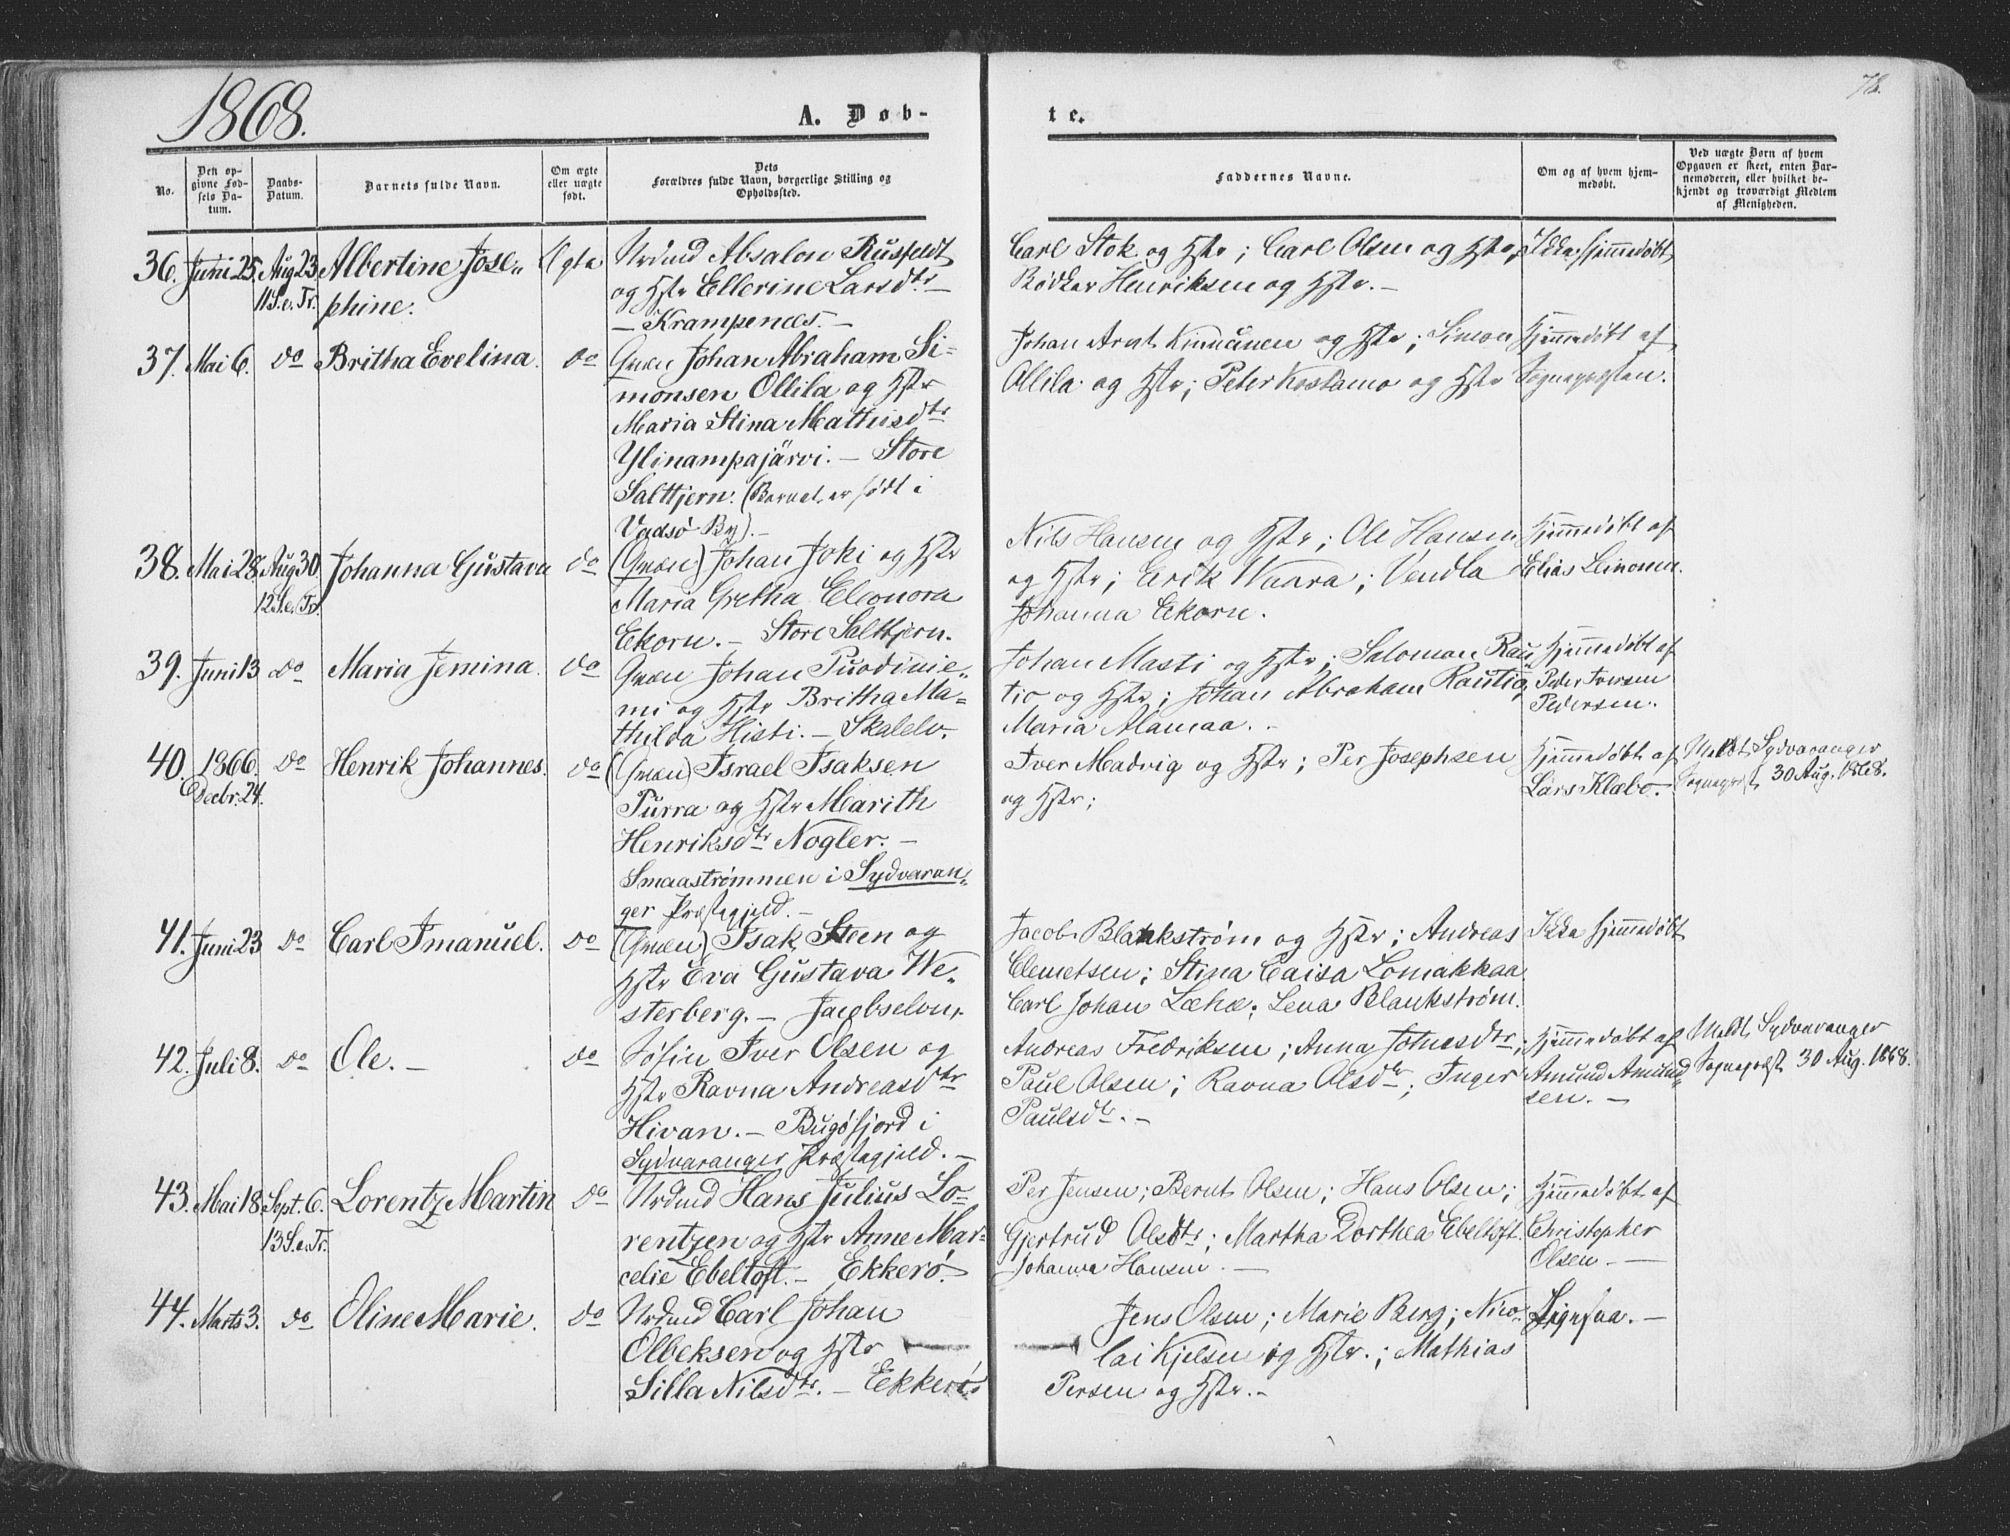 1868.
A. Døb-
te.
78.
No.
Den op-
givne Fød-
sels Da-
tum.
Daabs-
Datum.
Barnets fulde Navn.
Om ægte
eller uægte
født.
Dets
Forældres fulde Navn, borgerlige Stilling og
Opholdssted.
Faddernes Navne.
Om og af hvem hjem-
medøbt.
Ved uægte Børn af hvem
Opgaven er skeet, enten Bar-
nemoderen, eller hvilket be-
kjendt og troværdigt Medlem
af Menigheden.
36. Juni 25. Aug 23 Albertine Jose- Ægte Nrdmd Absalon Rusfeldt
11 S. e. Tr. phine. og Hstr Ellerine Larsdtr
— Krampenæs. —
Carl Stok og Hstr; Carl Olsen og Hstr;
Bødker Henriksen og Hstr. —
Ikke hjemmedøbt
37. Mai 6. do Britha Evelina. do Qvæn Johan Abraham Si-
monsen Ollila og Hstr
Maria Stina Mathisdtr
Ylinampajärvi. — Store
Salttjern. (Barnet er født i
Vadsø By). —
Johan Aret Kinnunen og Hstr; Simon
Ollila og Hstr; Peter Kostamo og Hstr
Hjemmedøbt af
Sognepræsten.
38. Mai 28. Aug 30 Johanna Gustava do (Qvæn) Johan Joki og Hstr
12 S. e. Tr. Maria Gretha Eleonora
Ekorn. — Store Salttjern.
Nils Hansen og Hstr; Ole Hansen
og Hstr; Erik Waara; Vendla
Johanna Ekorn.
Hjemmedøbt af
Elias Leinonen.
39. Juni 13 do Maria Jemina. do Qvæn Johan Puodinie-
mi og Hstr Britha Ma-
thilda Histi. — Skalelv.
Johan Masti og Hstr; Salomon Rau-
tio og Hstr; Johan Abraham Rautio;
Maria Alamaa. —
Hjemmedøbt af
Peder Iversen
Pedersen.
40. 1866. do Henrik Johannes. do (Qvæn) Israel Isaksen
Decbr. 24. Purra og Hstr Marith
Henriksdtr Nogler. —
Smaastrømmen i Sydvaran-
ger Præstegjeld. —
Iver Madvig og Hstr; Per Josephsen
og Hstr;
Hjemmedøbt af
Lars Klæbo.
Meldt Sydvaranger
Sognepræst 30 Aug. 1868.
41. Juni 23 do Carl Imanuel. do (Qvæn) Isak Steen og
Hstr Eva Gustava We-
sterberg. — Jacobselven.
Jacob Blankstrøm og Hstr; Andreas
Clemetsen; Stina Caisa Lomakkaa
Carl Johan Læhæ; Lena Blankstrøm.
Ikke hjemmedøbt
42. Juli 8. do Ole. — do Søfin Iver Olsen og
Hstr Ravna Andreasdtr
Hivan. — Bugøfjord i
Sydvaranger Præstegjeld. —
Andreas Fredriksen; Anna Johnesdtr;
Paul Olsen; Ravna Olsdtr; Inger
Paulsdtr. —
Hjemmedøbt af
Amund Amund-
sen. —
Meldt Sydvaranger
Sognepræst 30 Aug. 1868.
43. Mai 18. Sept. 6. Lorentz Martin do Nrdmd Hans Julius Lo-
13 S. e. Tr. rentzen og Hstr Anne Mar-
celie Ebeltoft. — Ekkerø.
Per Jensen; Bernt Olsen; Hans Olsen;
Gjertrud Olsdtr; Martha Dorthea Ebeltoft.
Johanna Hansen. —
Hjemmedøbt af
Christopher
Olsen. —
44. Marts 3. do Oline Marie. do Nrdmd Carl Johan
Olbeksen og Hstr
Silla Nilsdtr. — Ekkerø
Jens Olsen; Marie Berg; Nico-
lai Kjelsen og Hstr.; Mathias
Persen og Hstr. —
Ligesaa. —